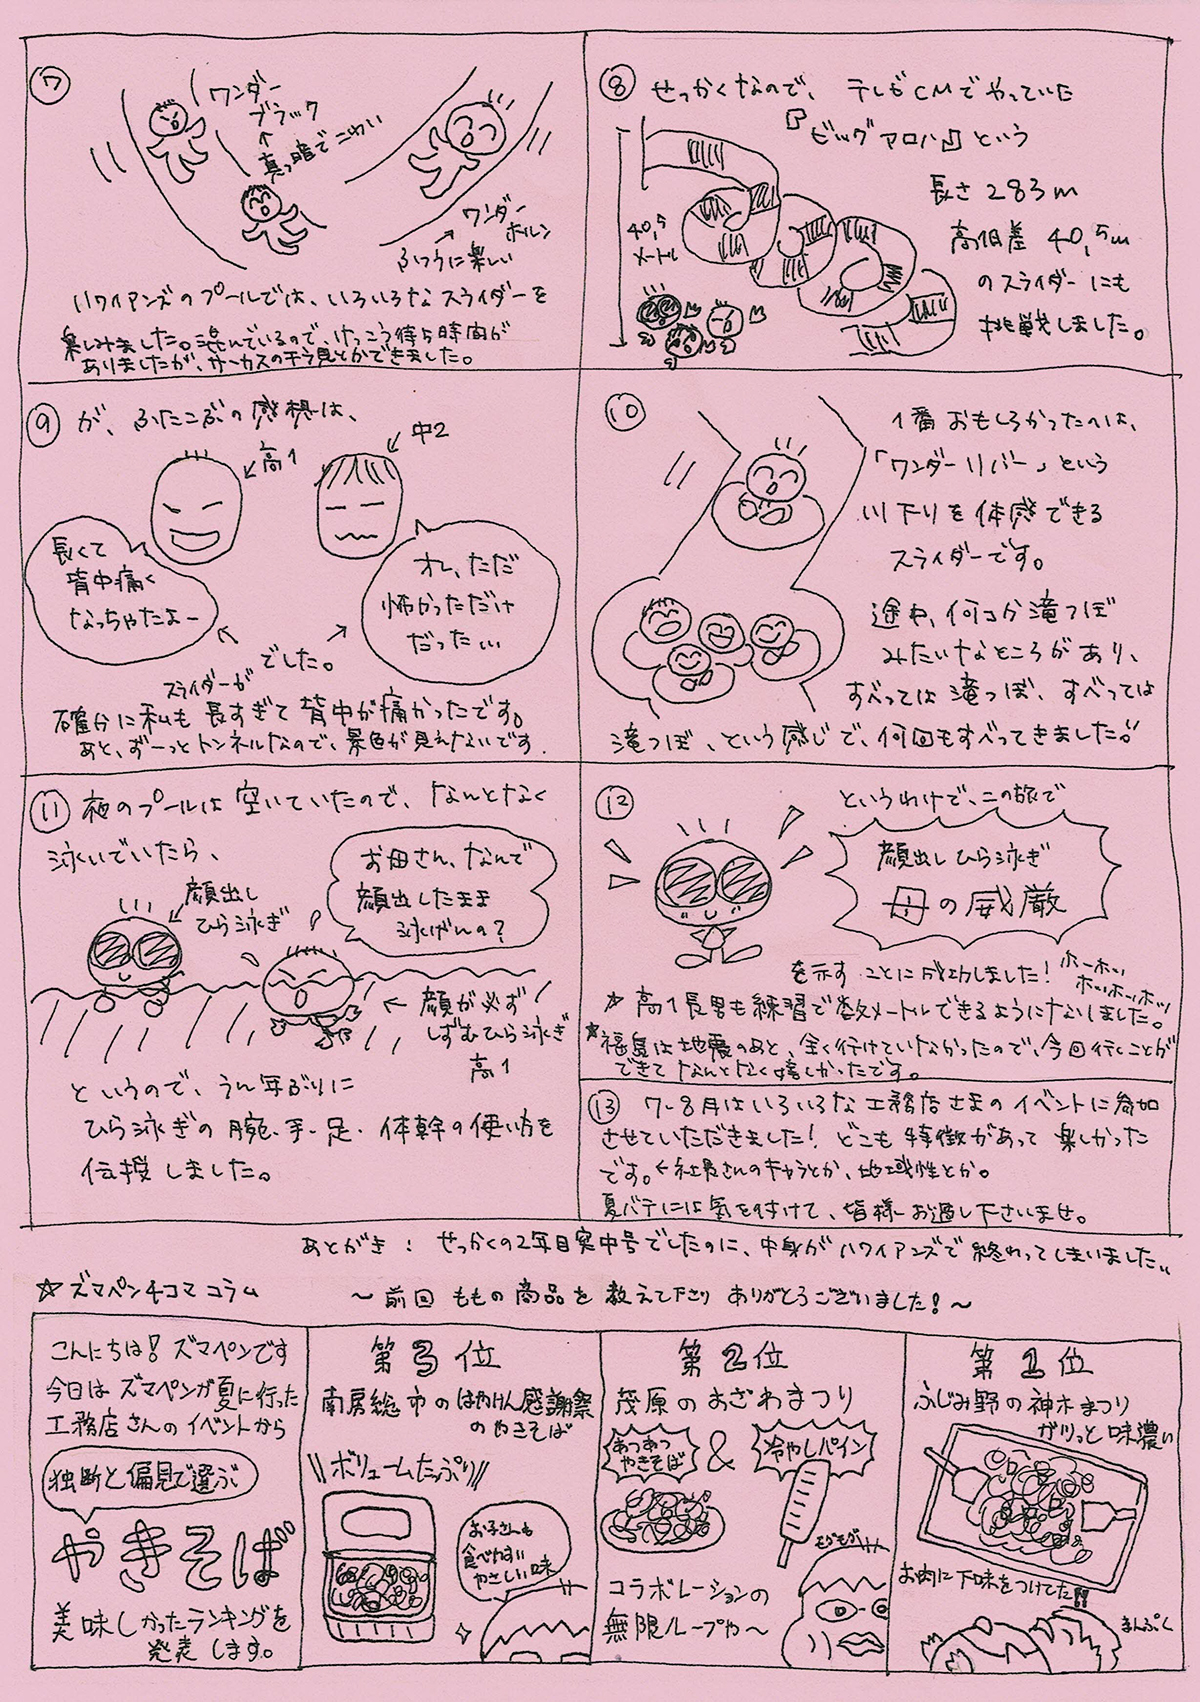 ⑦
ワンダー
ブラック
↑
真っ暗でこわい
ワンダー
ホルン
ふつうに楽しい
ハワイアンズのプールでは、いろいろなスライダーを
楽しみました。混んでいるので、けっこう待ち時間が
ありましたが、サーカスのチラ見とかできました。
⑧ せっかくなので、テレビCMでやっていた
『ビッグアロハ』という
長さ283m
高低差 40,5m
のスライダーにも
挑戦しました。
40,5
メートル
⑨ が、ふたこぶの感想は、
高1
中2
長くて
背中痛く
なっちゃたよー
オレ、ただ
怖かっただけ
だった…
でした。
スライダーが
確かに私も長すぎて背中が痛かったです。
あと、ずーっとトンネルなので、景色が見えないです.
⑩
1番おもしろかったのは、
「ワンダーリバー」という
川下りを体感できる
スライダーです。
途中、何コか滝つぼ
みたいなところがあり、
すべっては滝つぼ、すべっては
滝つぼ、という感じで、何回もすべってきました!!
⑪ 夜のプールは空いていたので、なんとなく
泳いでいたら、
顔出し
ひら泳ぎ
お母さん、なんで
顔出したまま
泳げんの?
← 顔が必ず
しずむひら泳ぎ
高1
というので、うん年ぶりに
ひら泳ぎの腕、手、足、体幹の使い方を
伝授しました。
⑫
というわけで、この旅で
顔出しひら泳ぎ
母の威厳
を示すことに成功しました!
ホーホッ
ホッホーホッ
☆高1長男も練習で数メートルできるようになしました。
☆福島は地震のあと、全く行けていなかったので、今回行くことが
できてなんとなく嬉しかったです。
⑬ 7-8月はいろいろな工務店さまのイベントに参加
させていただきました! どこも特徴があって楽しかった
です。←社員さんのキャラとか、地域性とか。
夏バテには気を付けて、皆様お過し下さいませ。
あとがき:せっかくの2年目突中号でしたのに、中身がハワイアンズで終わってしまいました…
☆ズマペン4コマコラム
～前回ももの商品を教えて下さりありがとうございました!～
こんにちは! ズマペンです
今日はズマペンが夏に行った
工務店さんのイベントから
独断と偏見で選ぶ
やきそば
美味しかったランキングを
発表します。
第3位
南房総市のはやけん感謝祭
のやきそば
\\ボリュームたっぷり//
お子さんも
食べやすい
やさしい味
第2位
茂原のおざわまつり
あつあつ
やきそば
&
冷やしパイン
もぐもぐ
コラボレーションの
無限ループや～
第1位
ふじみ野の神木まつり
ガツっと味濃い
お肉に下味をつけてた!!
まんぷく